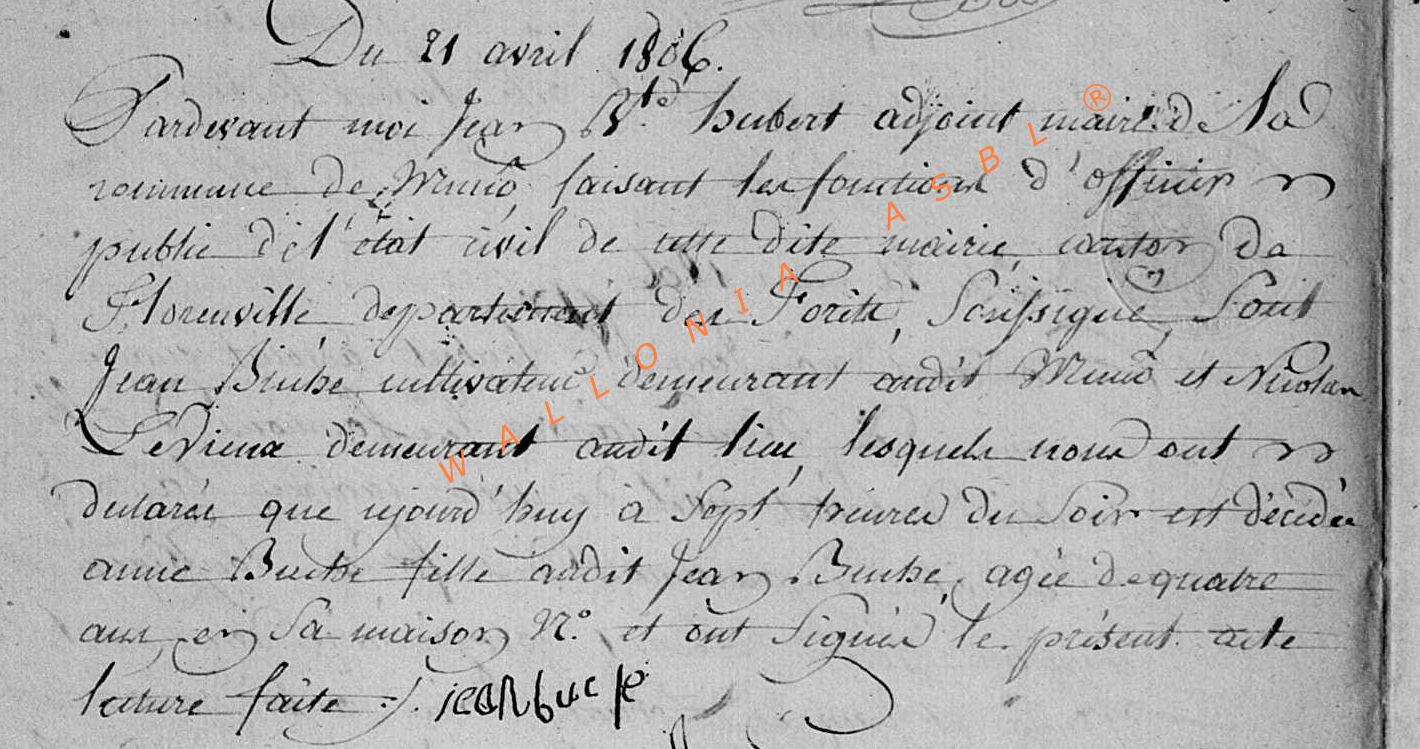 Du 21 avril 1806.
Pardevant moi Jean Bte. hubert adjoint maire de la
commune de Muno, faisant les fonctions d'officier
public de l'état civil de cette dite mairie, canton de
Florenville departement des Forêts, Soussigné, Sont
Jean Buche cultivateur demeurant audit Muno et Nicolas
LeVieux demeurant audit lieu, lesquels nous ont
declarés que ajourd'huy à Sept heures du Soir est décédée
anne Buche fille audit Jean Buche, agée de quatre
ans, en Sa maison N.° et ont Signés le présent acte
lecture faite ./. jean buche
WALLONIA ASBL ®